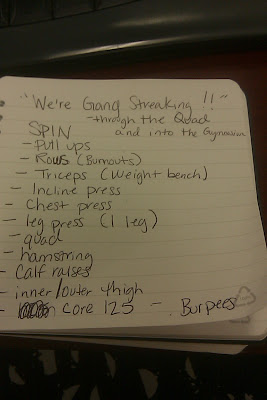 "We're Gang Streaking!!"
-through the Quad
SPIN and into the Gymnasium
- Pull ups
- Rows (Burnouts)
- Triceps (Weight bench)
- Incline press
- Chest press
- leg press (1 leg)
- quad
- hamstring
- Calf raises
- inner/outer thigh
- Core 125 - Burpees